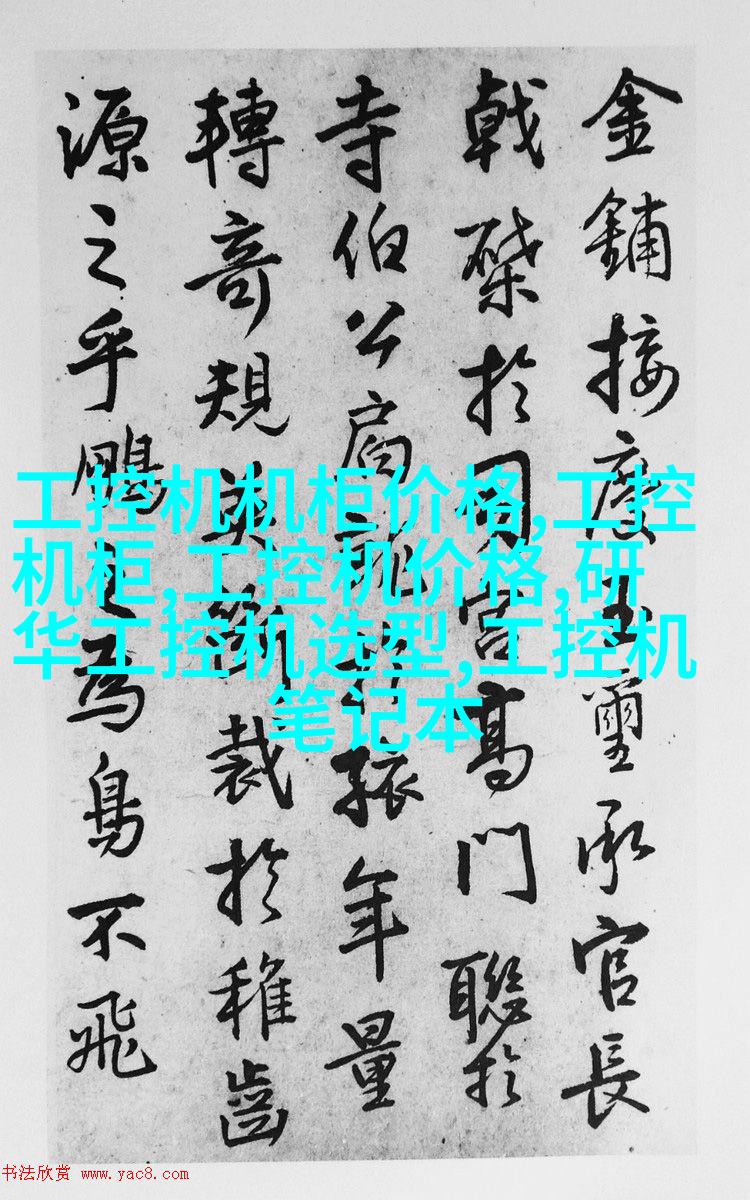 金鋪接慶玉璽承官長
戟棨於周宮高門聯於
寺伯公扃
孩年量
轉奇規
裁於稚齒
源之乎鵬之為鳥不飛
工控机机柜价格,工控
机柜,工控机价格,研
华工控机选型,工控机
笔记本
书法欣赏 www.yac8.com